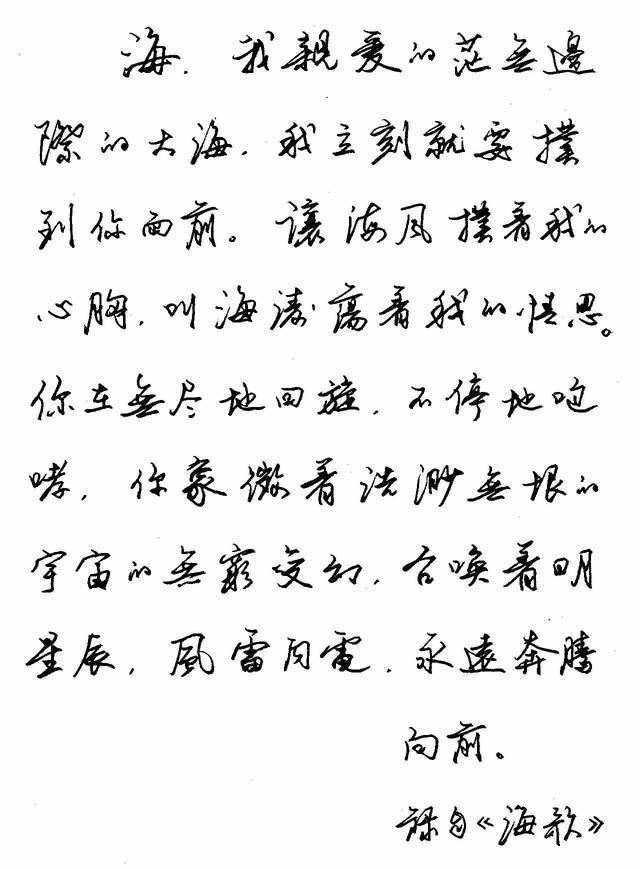 海，我親爱的茫無邊
際的大海，我立刻就要撲
到你面前。讓海风撲着我的
心胸，叫海涛蕩着我的情思。
你在無尽地回旋，不停地咆
哮，你象徵着浩渺無垠的
宇宙的無窮变幻，召唤着明
星辰，風雷闪電，永遠奔騰
向前。
録自《海歌》